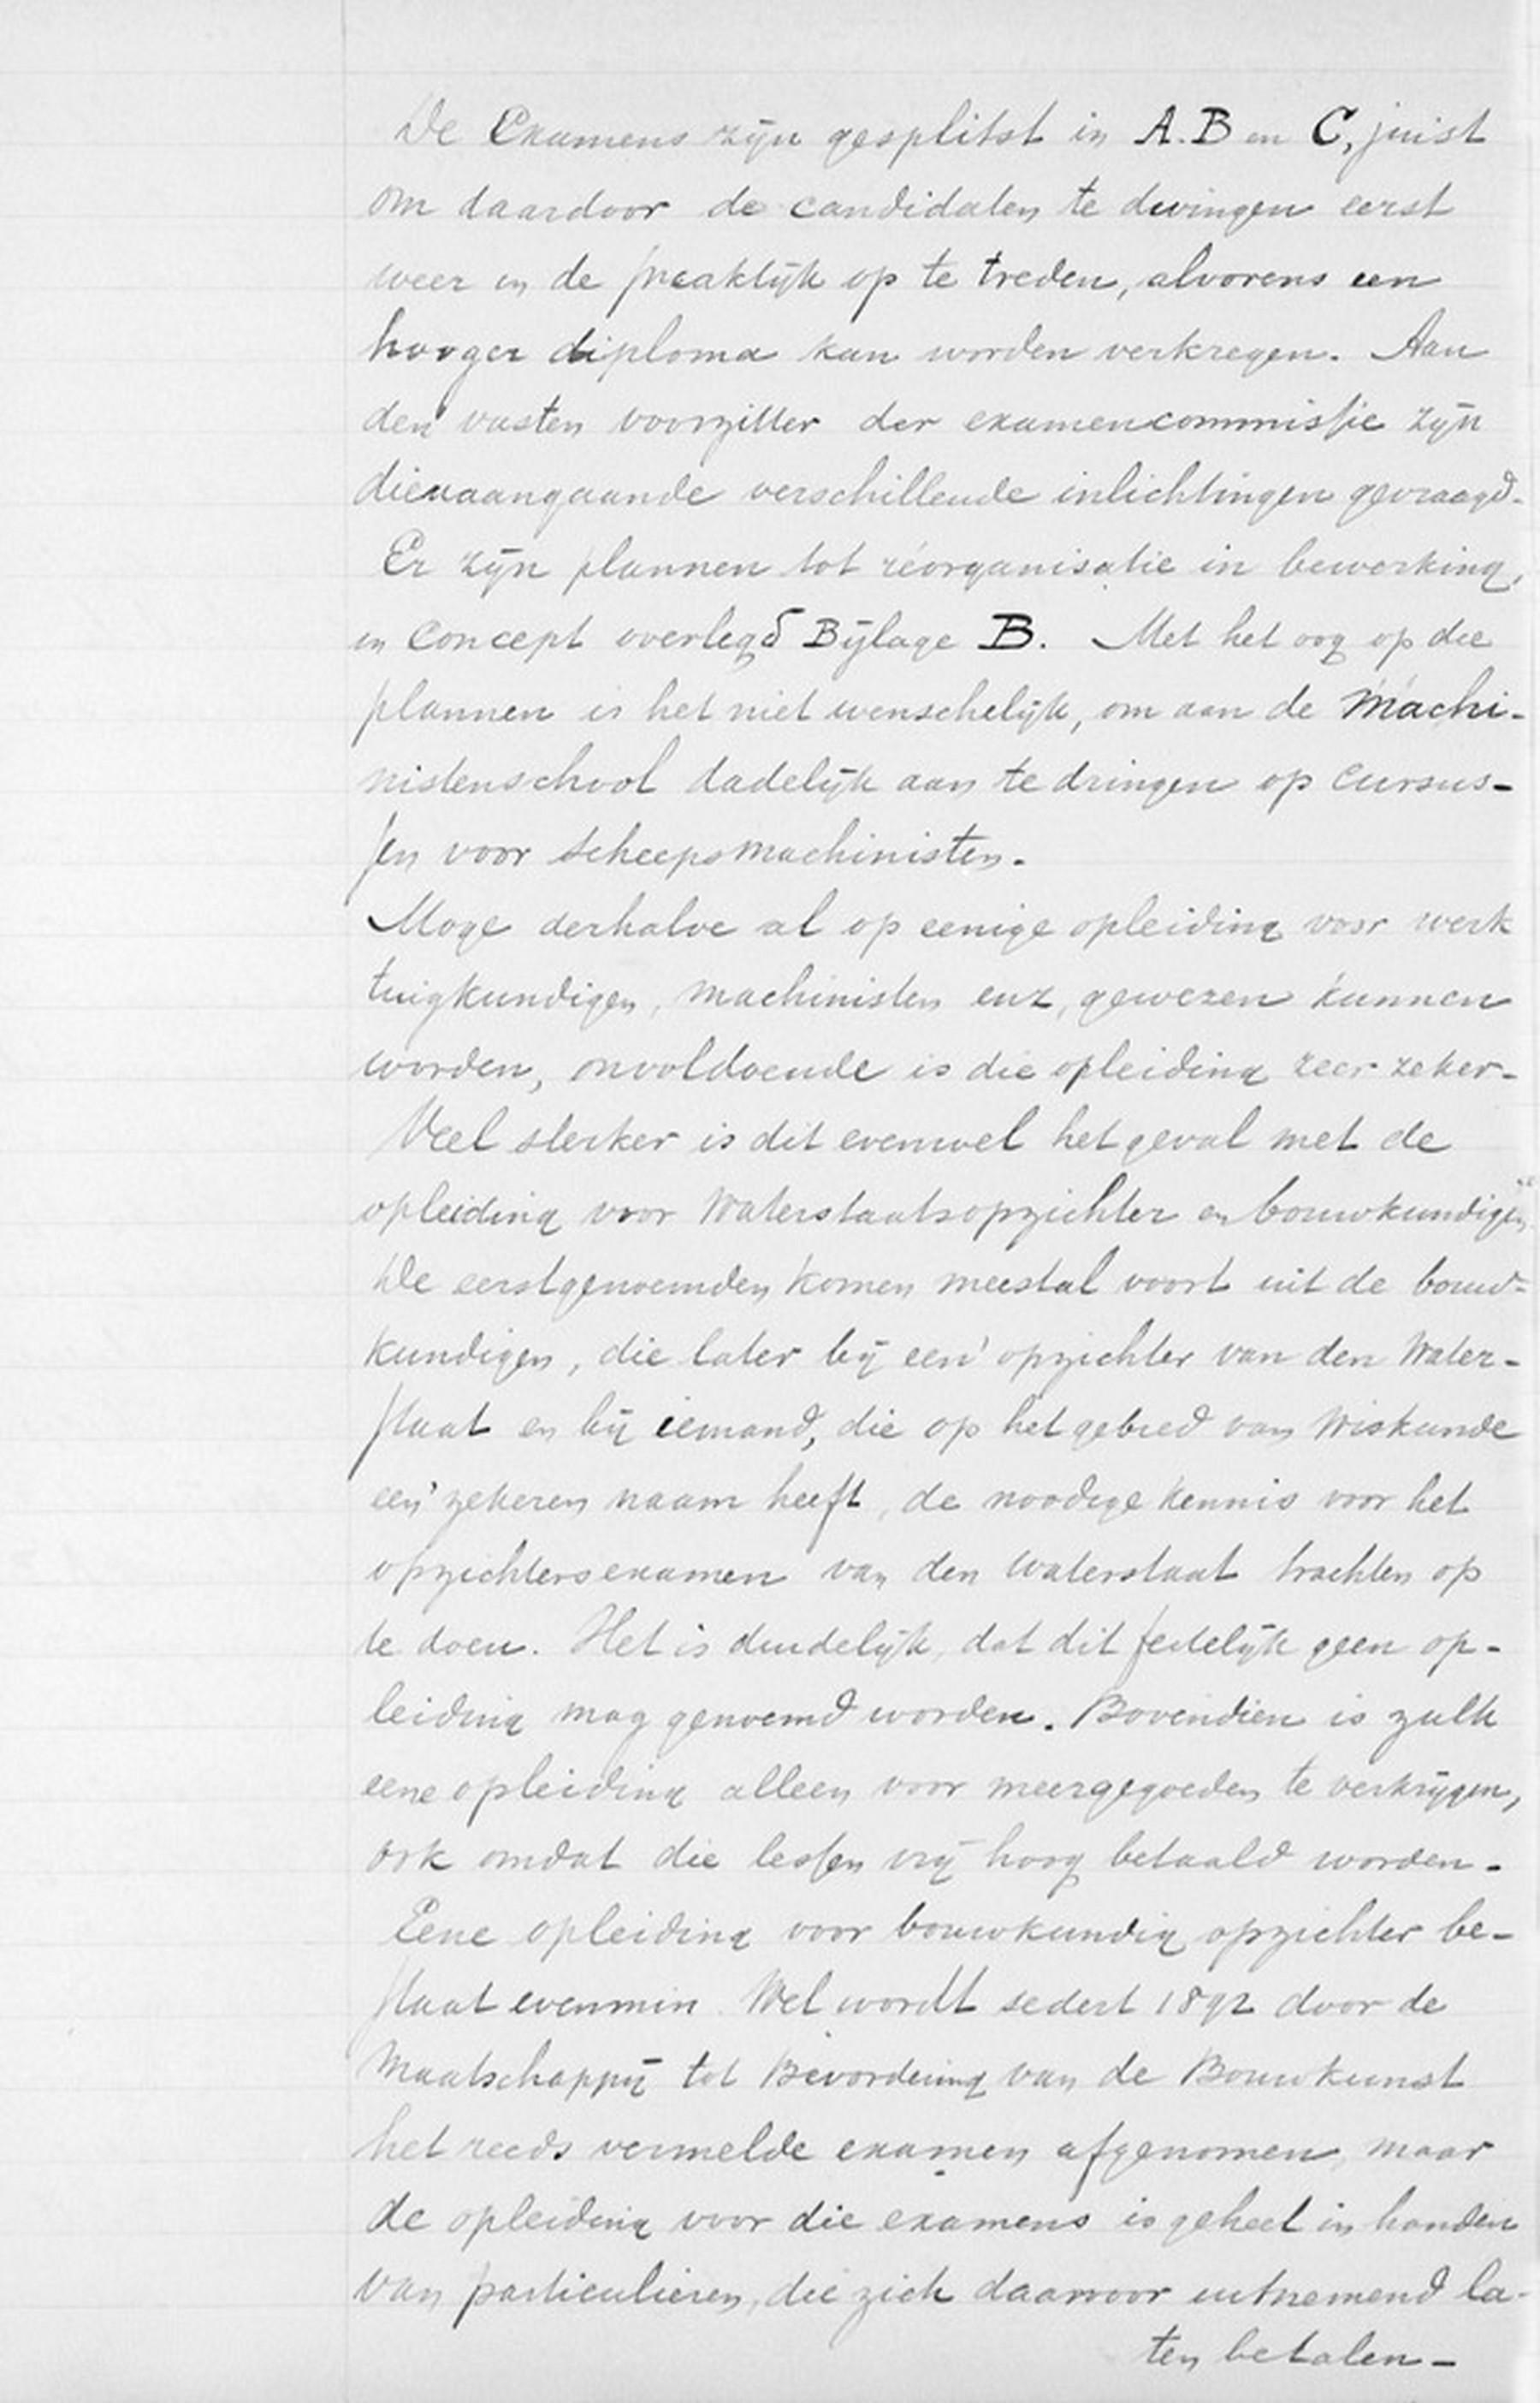 De Examens zijn gesplitst in A. B en C, juist
om daardoor de candidaten te dwingen eerst
weer in de praaktijk op te treden, alvorens een
hooger diploma kan worden verkregen. Aan
den vasten voorzitter der examencommissie zijn
dienaangaande verschillende inlichtingen gevraagd.
Er zijn plannen tot réorganisatie in bewerking,
in Concept overlegd Bijlage B. Met het oog op die
plannen is het niet wenschelijk, om aan de Machi-
nistenschool dadelijk aan te dringen op cursus-
sen voor scheepsmachinisten.
Moge derhalve al op eenige opleiding voor werk
tuigkundigen, machinisten enz, gewezen kunnen
worden, onvoldoende is die opleiding zeer zeker-
Veel sterker is dit evenwel het geval met de
opleiding voor Waterstaatsopzichter en bouwkundigen
De eerstgenoemden komen meestal voort uit de bouw-
kundigen, die later bij een' opzichter van den Water-
staat en bij iemand, die op het gebied van Wiskunde
een' zekeren naam heeft, de noodige kennis voor het
opzichtersexamen van den Waterstaat trachten op
te doen. Het is duidelijk, dat dit feitelijk geen op-
leiding mag genoemd worden. Bovendien is zulk
eene opleiding alleen voor meergegoeden te verkrijgen,
ook omdat die lessen vrij hoog betaald worden-
Eene opleiding voor bouwkundig opzichter be-
staat evenmin. Wel wordt sedert 1892 door de
Maatschappij tot Bevordering van de Bouwkunst
het reeds vermelde examen afgenomen, maar
de opleiding voor die examens is geheel in handen
van particulieren, die zich daarvoor uitnemend la-
ten betalen-